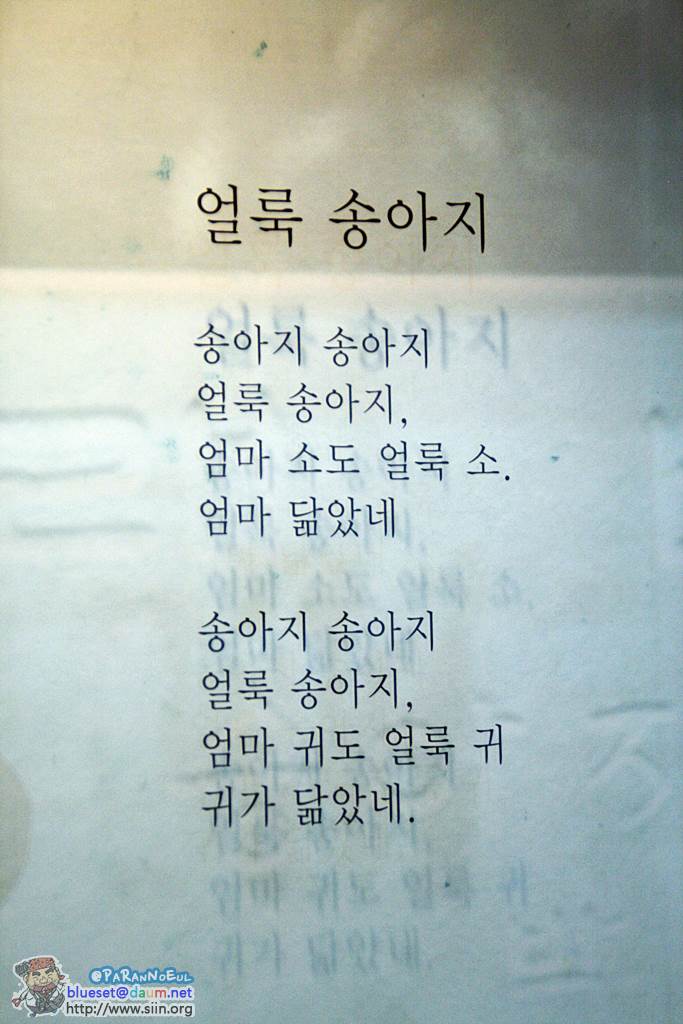 얼룩 송아지
송아지 송아지
얼룩 송아지,
엄마 소도 얼룩 소.
엄마 닮았네
송아지 송아지
얼룩 송아지,
엄마 귀도 얼룩 귀
귀가 닮았네.
@PaRanNoEul
blueset@daum.net
http://www.siin.org